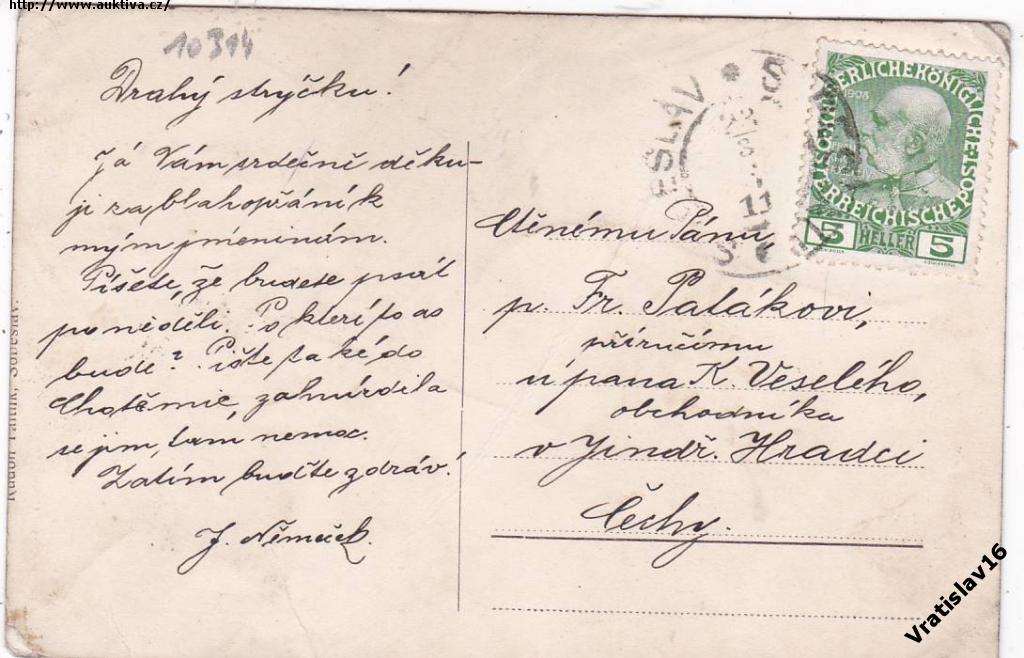 http://www.auktiva.cz/
10314
Drahý strýčku!
Já Vám srdečně děku-
ji za blahopřání k
mým jmeninám.
Píšete, že budete psát
poneděli. Po které to as
bude? Pište také do
se jim, tam nemoc.
Zatím buďte zdráv!
J. Němeček.
Rudolf Faitlík, Soběslav.
ÖSTERREICHISCHE POST
1908
5 HELLER 5
Ctěnému Pánu
p. Fr. Palákovi,
příručímu
u pana K. Veselého,
obchodníka
v Jindř. Hradci
Čechy.
Vratislav16